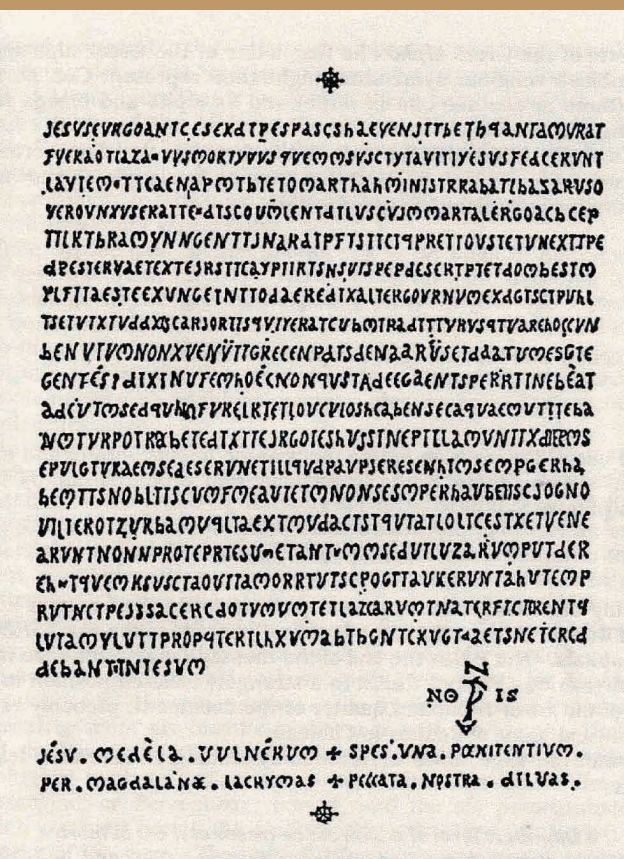 JESVSEVRGOANTCESEXATPESPASCSHAEVENJTTBETHQANIAMVRAT
FVERAOTIAZA-VVSMORTYVVSQVEMMSVSCTYTAVITIYESVSFEDCERVNT
LAVIEM-TTCAENAPMTHTETOMARTHAHMINISTRRABATLBAZARVSO
VEROVNXVSERATTE-DTSCOUMLENTATLVSCVJMMARTALERGOACHCEP
TTLKTBRAMYNNGENTTJNARDTPFTSTTCIQPRETTOVSTETVNEXTTPE
DPESTERVAETEXTEJRSTTCAYPIIRTSNSVISPEPDESERTPTETDOMBESTM
PLFTTAESTEEXVNGETNTTODAEREDIXALTERGOVRNVMEXDGTSCTPVHL
TSETVTXTVDDXJSCARJORTTSQVIYERATCVBMTRADTTTVRVSQTVAREHOCCVN
LENVIVMNONXVENVTTGRECENPATSDENAARVSETDAATVMESGTE
GENTÉSPDIXINVFEMHOÉCNONQVSTADEEGAENTSPERRTINEBÉAT
ADCVTMSEDQVHNFVRELRTETLOVCVIOSHCABENSECAQVAEMVTTTEBA
NMTVRPOTRABETEDTXTTEJRGOTESHVSSTNEPTLLAMVNTTXDIERMS
EPVLGTVRAEMSEAESERVNETILLIQVDPAVPSERESENHTMSEMPGERHA
BEMTTSNOBLTISCVMFMEAVTETMNONSESMPERHAVBENSCJOGNO
VILIEROTZVRBAMVQLTAEXTMVDACTSTQVTATLOLTCESTXETVENE
ARVNTNONNPROTEPRTESU-ETANT-MMSEDVTLVZARVMPVTDER
EH-TQVEMKSVSCTAOVITAMORRTVTSCPOGTTAVKERVNTAHVTEMP
RVTNCTPEJSSACERCDOTVMVMTETLAZCARVMTNATERFICTRENTQ
LVTAMYLVTTPROPQTERTLLXVMABTHGNTCXVGT-AETSNETCRCD
DEBANTIINIESVM
NO IS
JÉSV. MEDÈLA. VULNÉRUM + SPES.VNA. PŒNITENTIVM.
PER. MAGDALANÆ. LACRYMAS + PECCATA. NOSTRA. DILVAS.